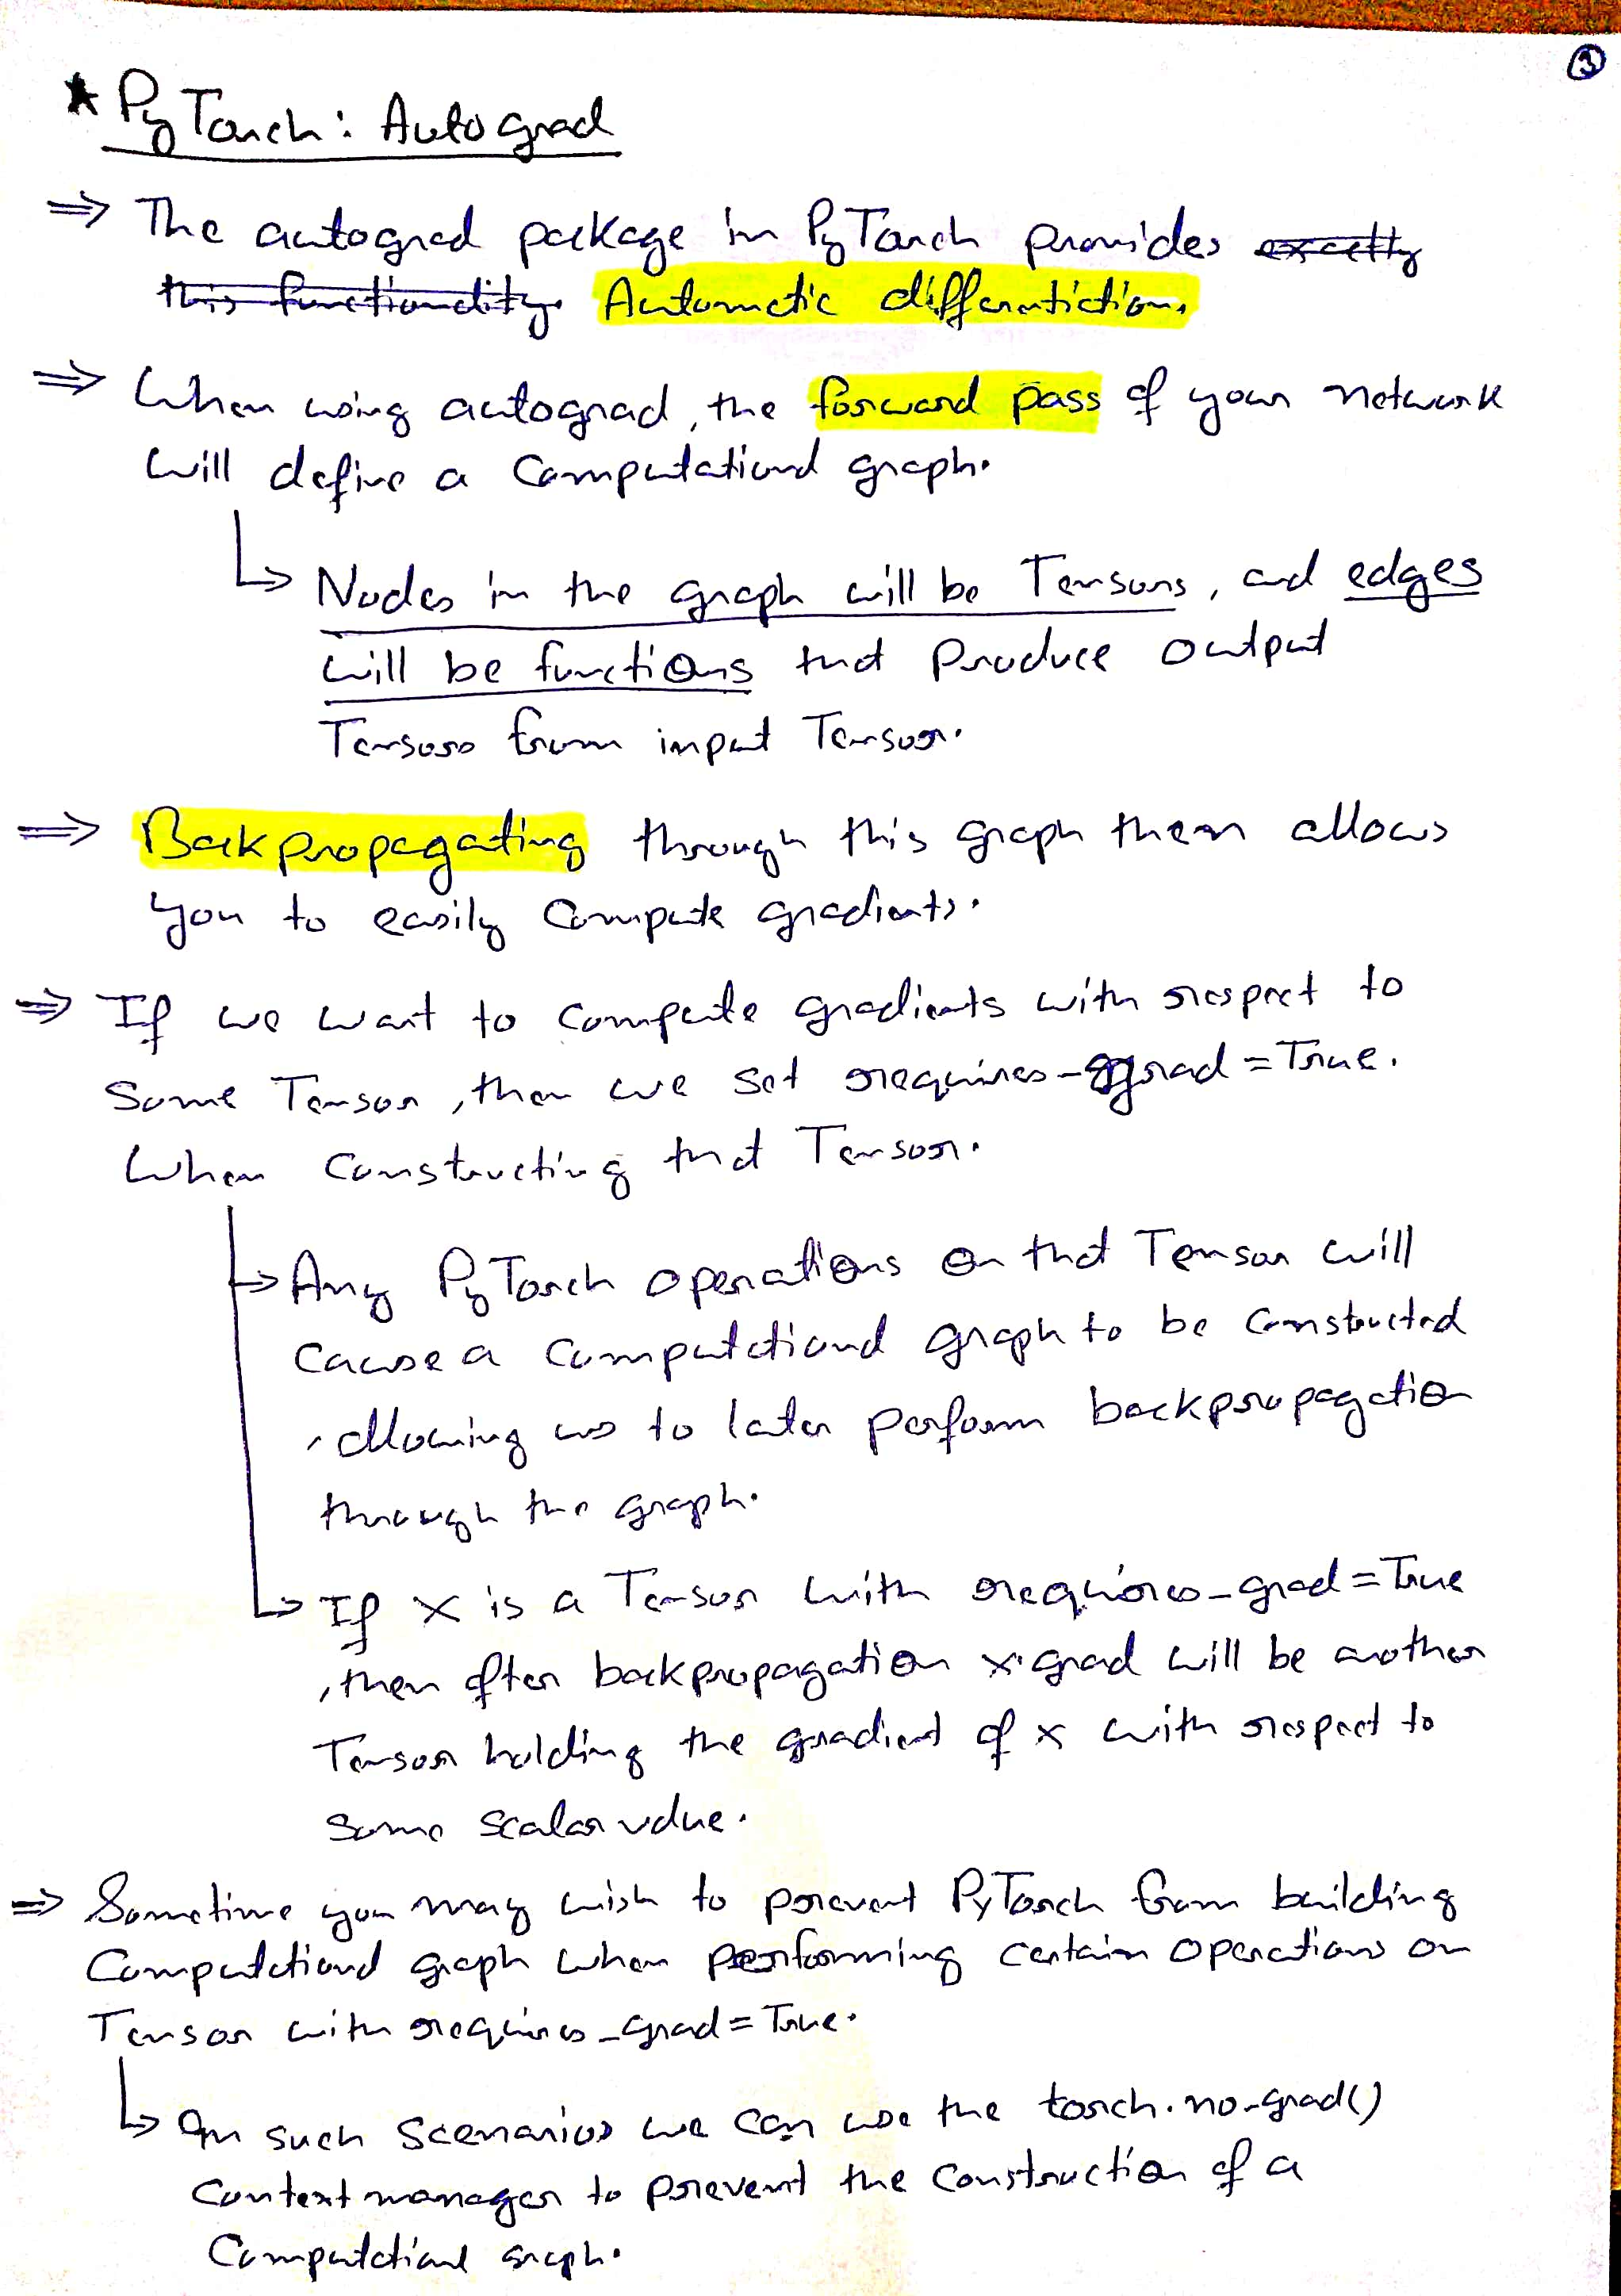 ③
* PyTorch: Autograd
⇒ The autograd package in PyTorch provides ~~exactly~~
~~this functionality.~~ Automatic differentiation.
⇒ When using autograd, the forward pass of your network
will define a computational graph.
↳ Nodes in the graph will be Tensors, and edges
will be functions that produce output
Tensors from input Tensor.
⇒ Backpropagating through this graph then allows
you to easily compute gradients.
⇒ If we want to compute gradients with respect to
Some Tensor, then we set requires_grad = True.
When constructing that Tensor.
↳ Any PyTorch operations on that Tensor will
cause a computational graph to be constructed
, allowing us to later perform backpropagation
through the graph.
↳ If x is a Tensor with requires_grad = True
, then after backpropagation x.grad will be another
Tensor holding the gradient of x with respect to
some scalar value.
⇒ Sometime you may wish to prevent PyTorch from building
Computational graph when performing certain operations on
Tensor with requires_grad = True.
↳ In such scenarios we can use the torch.no_grad()
context manager to prevent the construction of a
Computational graph.